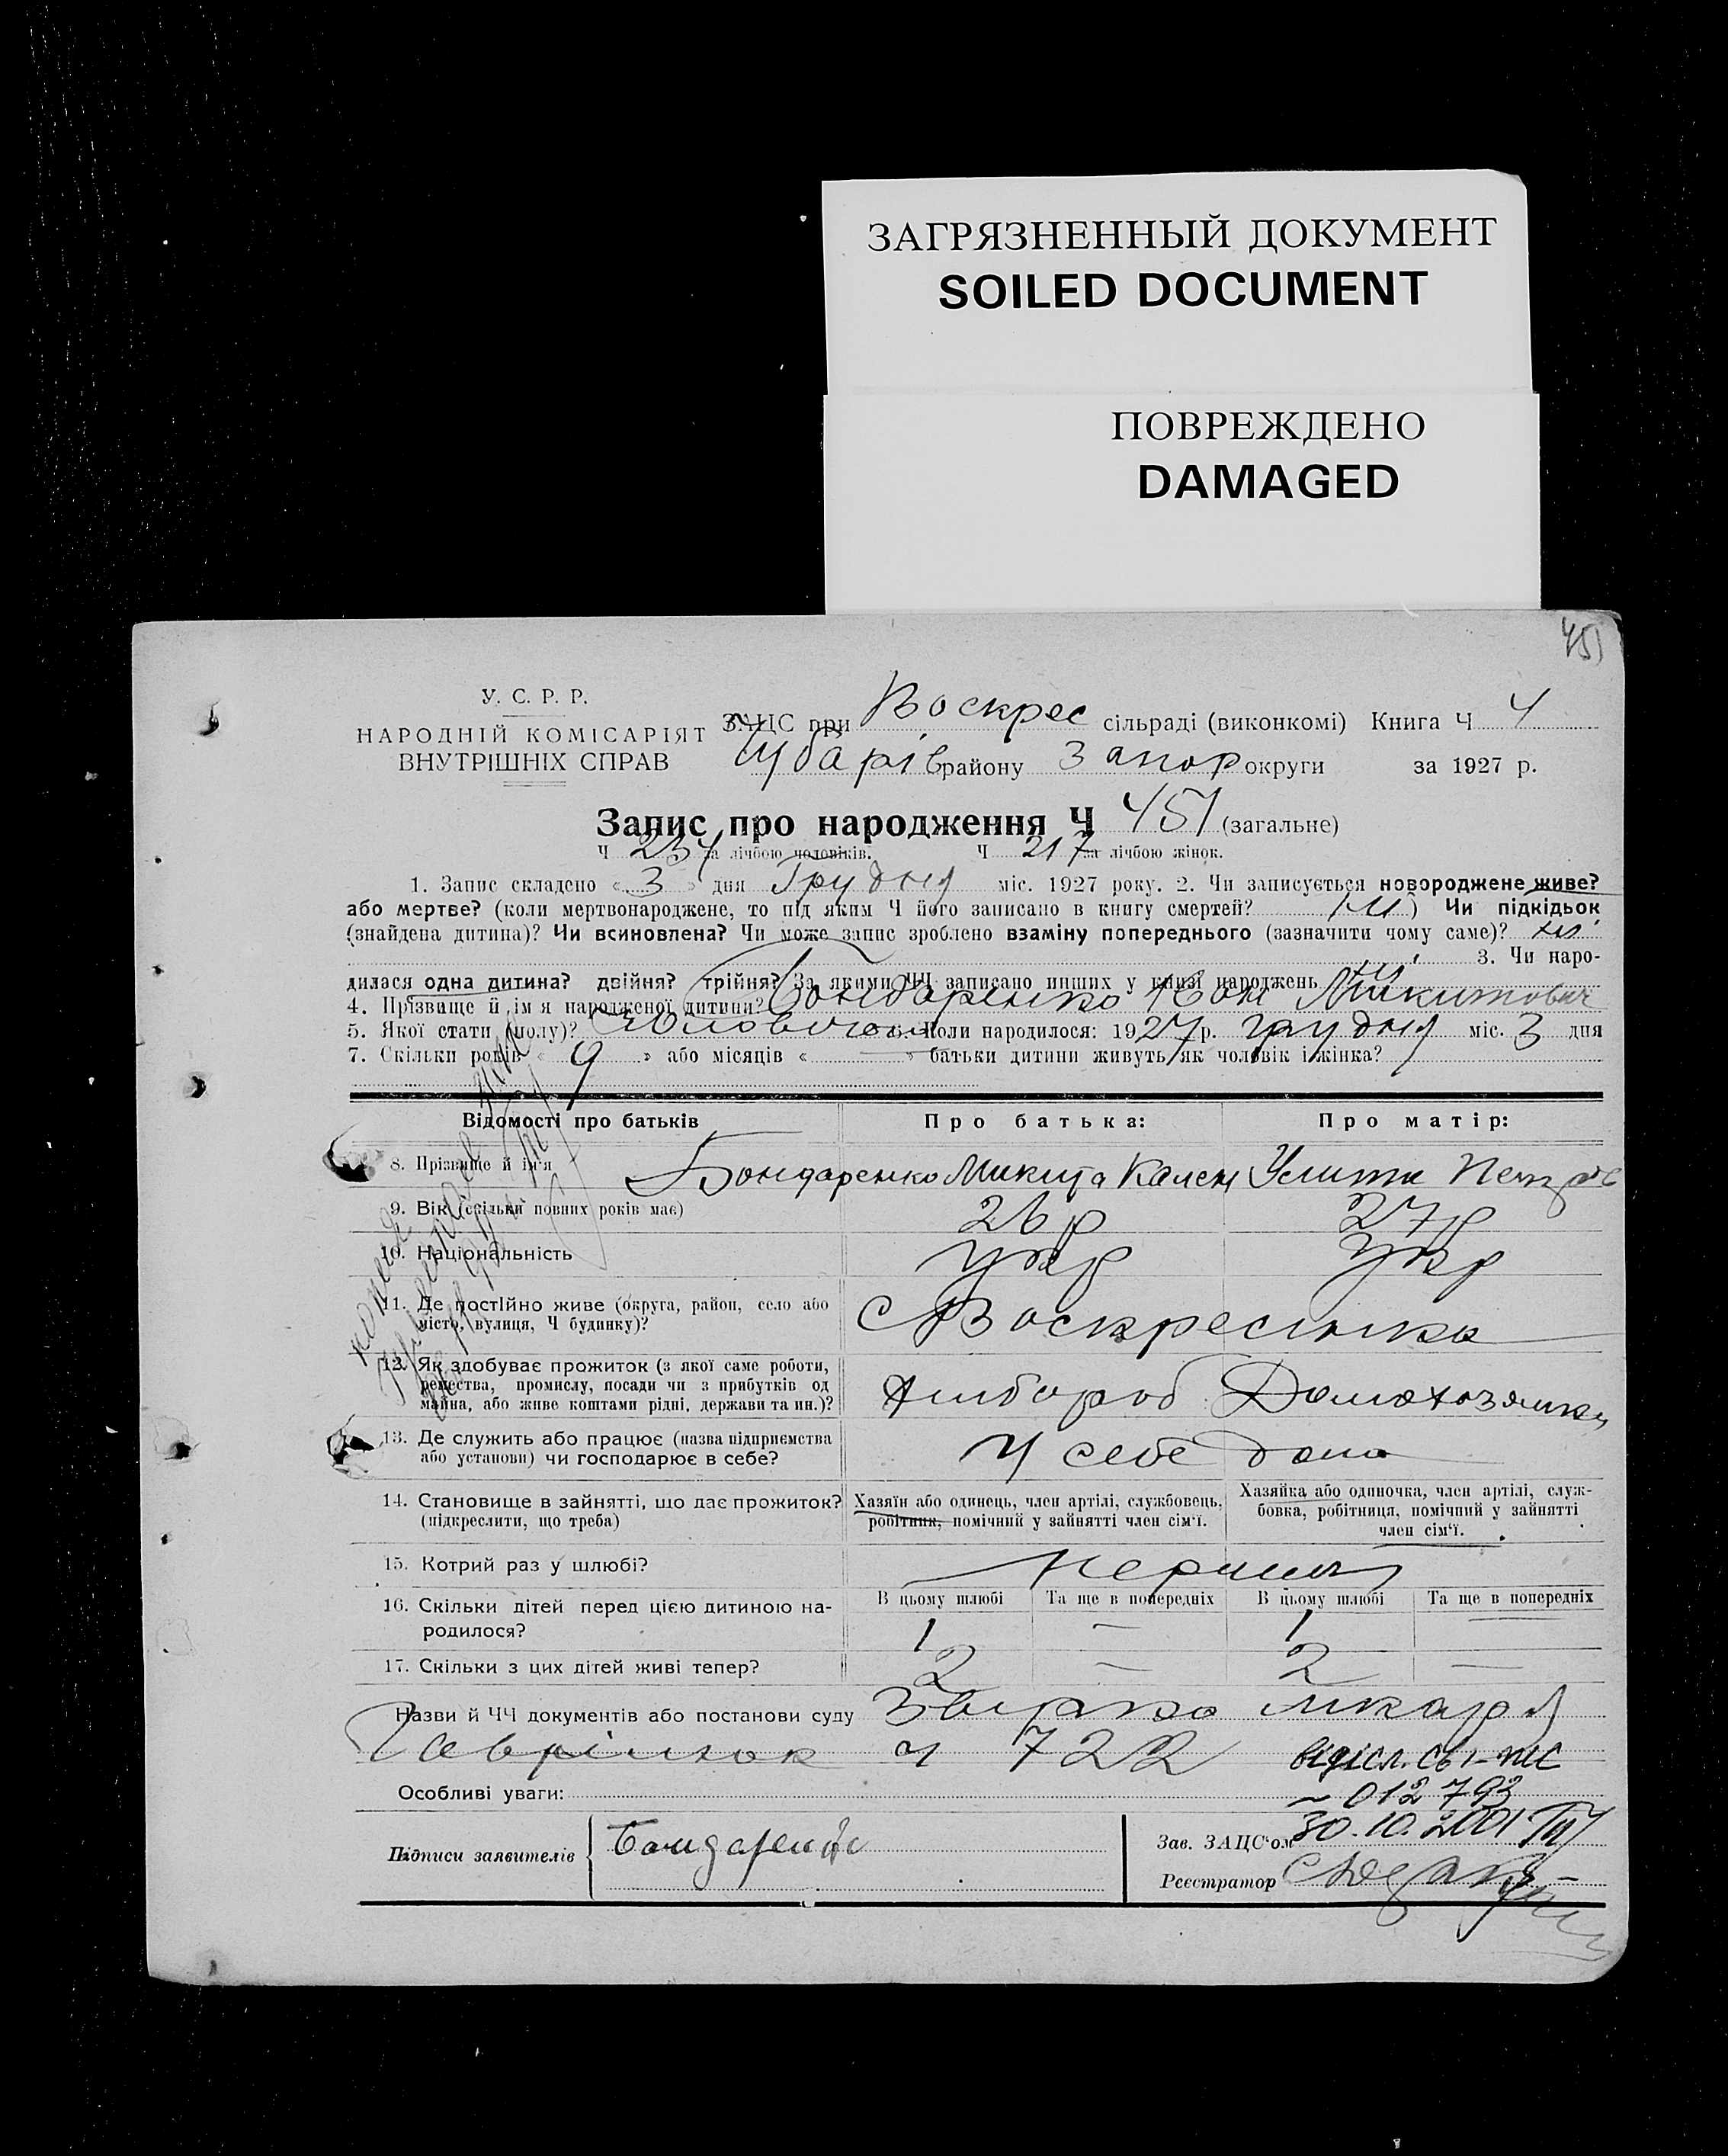 ЗАГРЯЗНЕННЫЙ ДОКУМЕНТ
SOILED DOCUMENT
ПОВРЕЖДЕНО
DAMAGED
451
У. С. Р. Р.
НАРОДНІЙ КОМІСАРІЯТ
ВНУТРІШНІХ СПРАВ
ЗАЦС при Воскрес сільраді (виконкомі) Книга Ч 4
Чубарів району Запор округи за 1927 р.
Запис про народження Ч 451 (загальне)
Ч 234 за лічбою чоловіків. Ч 217 за лічбою жінок.
1. Запис складено « 3 » дня Грудня міс. 1927 року. 2. Чи записується новороджене живе?
або мертве? (коли мертвонароджене, то під яким Ч його записано в книгу смертей? ні ) Чи підкідьок
(знайдена дитина)? Чи всиновлена? Чи може запис зроблено взаміну попереднього (зазначити чому саме)? ні
3. Чи наро-
дилася одна дитина? двійня? трійня? За якими ЧЧ записано инших у книзі народжень ні
4. Прізвище й ім'я народженої дитини? Бондаренко Микитович
5. Якої стати (полу)? Чоловічої 6. Коли народилося: 1927 р. Грудня міс. 3 дня
7. Скільки років « 9 » або місяців « — » батьки дитини живуть як чоловік і жінка?
Відомості про батьків Про батька: Про матір:
8. Прізвище й ім'я Бондаренко Микита Кален Улита Петров
9. Вік (скільки повних років має) 26 р 27 р
10. Національність укр укр
11. Де постійно живе (округа, район, село або
місто, вулиця, Ч будинку)? с Воскресенка
12. Як здобуває прожиток (з якої саме роботи,
ремества, промислу, посади чи з прибутків од
майна, або живе коштами рідні, держави та ин.)? Хлібороб Домохозяйка
13. Де служить або працює (назва підприємства
або установи) чи господарює в себе? У себе дома
14. Становище в зайнятті, що дає прожиток?
(підкреслити, що треба)
Хазяїн або одинець, член артілі, службовець,
робітник, помічний у зайнятті член сім'ї.
Хазяйка або одиночка, член артілі, служ-
бовка, робітниця, помічний у зайнятті
член сім'ї.
15. Котрий раз у шлюбі? перший
16. Скільки дітей перед цією дитиною на-
родилося?
В цьому шлюбі Та ще в попередніх В цьому шлюбі Та ще в попередніх
1 — 1 —
17. Скільки з цих дітей живі тепер? 2 — 2 —
Назви й ЧЧ документів або постанови суду
ч 722
012793
Особливі уваги:
30.10.2001
Підписи заявителів Бондаренко
Зав. ЗАЦС'ом
Реєстратор